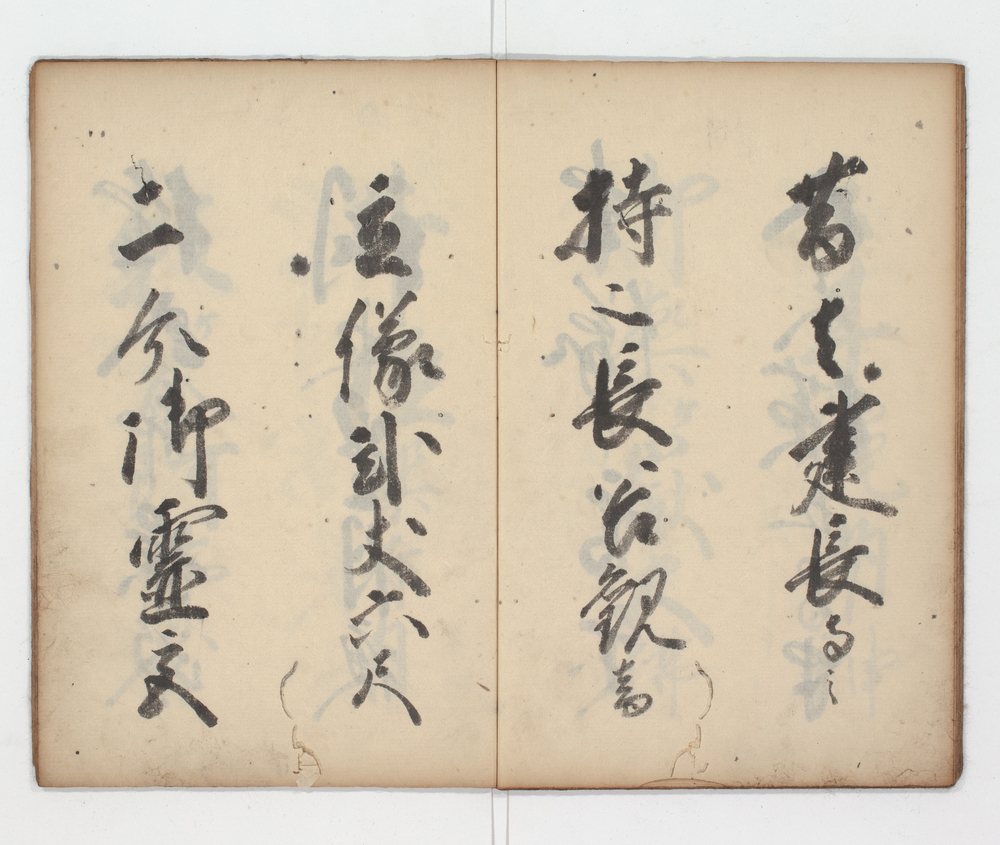 昔建長寺之
持之長谷観音
立像弐丈六尺
二分御靈文